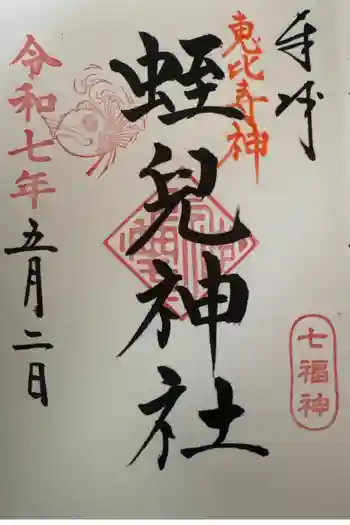 奉拝
恵比寿神
蛭兒神社
七福神
令和七年
五月二日